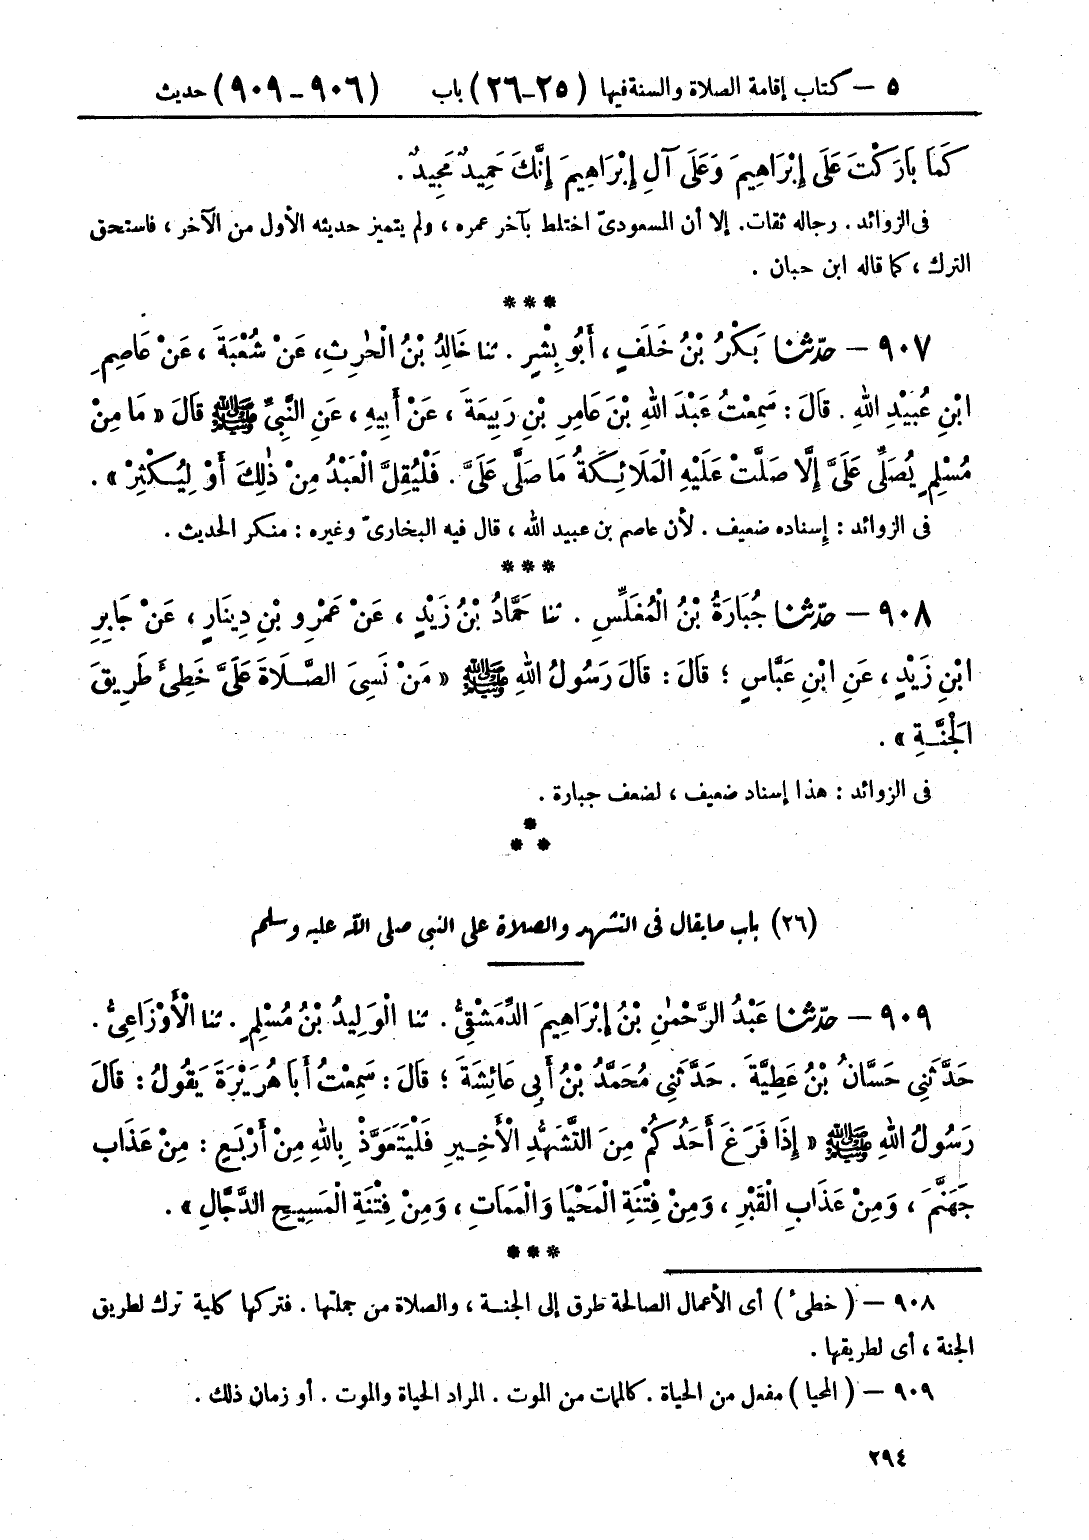 ٥ — كتاب إقامة الصلاة والسنة فيها (٢٥-٢٦) باب (٩٠٦-٩٠٩) حديث
كَمَا بَارَكْتَ عَلَى إِبْرَاهِيمَ وَعَلَى آلِ إِبْرَاهِيمَ إِنَّكَ حَمِيدٌ مَجِيدٌ .
فى الزوائد . رجاله ثقات. إلا أن المسعودىّ اختلط بآخر عمره ، ولم يتميز حديثه الأول من الآخر ، فاستحق
الترك ، كما قاله ابن حبان .
***
٩٠٧ — حدّثنا بَكْرُ بْنُ خَلَفٍ ، أَبُو بِشْرٍ . ثنا خَالِدُ بْنُ الْحٰرِثِ، عَنْ شُعْبَةَ ، عَنْ عَاصِمِ
ابْنِ عُبَيْدِ اللهِ . قَالَ : سَمِعْتُ عَبْدَ اللهِ بْنَ عَامِرِ بْنِ رَبِيعَةَ ، عَنْ أَبِيهِ ، عَنِ النَّبِيِّ ﷺ قَالَ « مَا مِنْ
مُسْلِمٍ يُصَلِّى عَلَىَّ إِلَّا صَلَّتْ عَلَيْهِ الْمَلَائِكَةُ مَا صَلَّى عَلَىَّ . فَلْيُقِلَّ الْعَبْدُ مِنْ ذٰلِكَ أَوْ لِيُكْثِرْ » .
فى الزوائد : إسناده ضعيف . لأن عاصم بن عبيد الله ، قال فيه البخارىّ وغيره : منكر الحديث .
***
٩٠٨ — حدّثنا جُبَارَةُ بْنُ الْمُغَلِّسِ . ثنا حَمَّادُ بْنُ زَيْدٍ ، عَنْ عَمْرِو بْنِ دِينَارٍ ، عَنْ جَابِرِ
ابْنِ زَيْدٍ ، عَنِ ابْنِ عَبَّاسٍ ؛ قَالَ : قَالَ رَسُولُ اللهِ ﷺ « مَنْ نَسِىَ الصَّلَاةَ عَلَىَّ خَطِئَ طَرِيقَ
الْجَنَّةِ » .
فى الزوائد : هذا إسناد ضعيف ، لضعف جبارة .
*
* *
(٢٦) باب ما يقال فى التشهد والصلاة على النبى صلى الله عليه وسلم
٩٠٩ — حدّثنا عَبْدُ الرَّحْمٰنِ بْنُ إِبْرَاهِيمَ الدِّمَشْقِىُّ . ثنا الْوَلِيدُ بْنُ مُسْلِمٍ . ثنا الْأَوْزَاعِىُّ .
حَدَّثَنِى حَسَّانُ بْنُ عَطِيَّةَ . حَدَّثَنِى مُحَمَّدُ بْنُ أَبِى عَائِشَةَ ؛ قَالَ : سَمِعْتُ أَبَا هُرَيْرَةَ يَقُولُ : قَالَ
رَسُولُ اللهِ ﷺ « إِذَا فَرَغَ أَحَدُكُمْ مِنَ التَّشَهُّدِ الْأَخِيرِ فَلْيَتَعَوَّذْ بِاللهِ مِنْ أَرْبَعٍ : مِنْ عَذَابِ
جَهَنَّمَ ، وَمِنْ عَذَابِ الْقَبْرِ ، وَمِنْ فِتْنَةِ الْمَحْيَا وَالْمَمَاتِ ، وَمِنْ فِتْنَةِ الْمَسِيحِ الدَّجَّالِ » .
***
٩٠٨ — ( خطئ ) أى الأعمال الصالحة طرق إلى الجنة ، والصلاة من جملتها . فتركها كلية ترك لطريق
الجنة ، أى لطريقها .
٩٠٩ — ( المحيا ) مفعل من الحياة . كالممات من الموت . المراد الحياة والموت . أو زمان ذلك .
٢٩٤